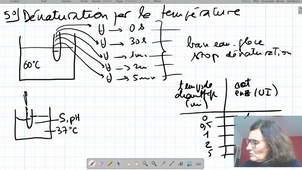 5°) Dénaturation par la température
60°C
→ 0 s
→ 30s
→ 1mn
→ 2mn
→ 5mn
bain eau-glace
stop dénaturation
S, pH
37°C
temps de
chauffage
(mn)
act
enz (UI)
0
0,5
1
2
5